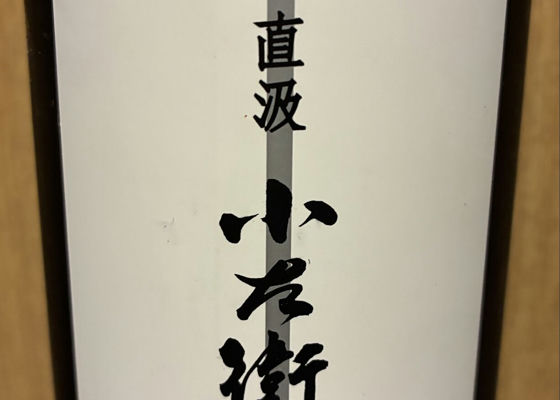 直汲
小左衛